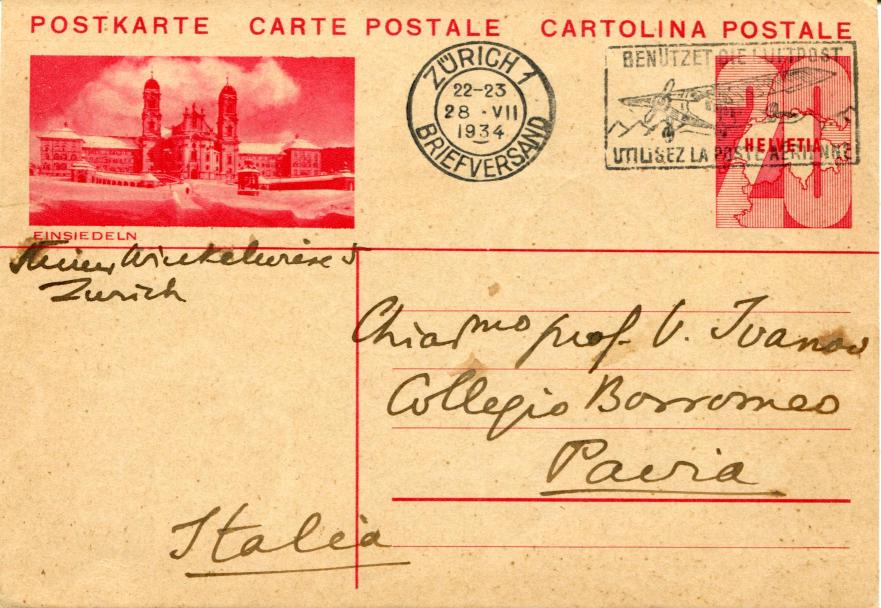 POSTKARTE CARTE POSTALE CARTOLINA POSTALE
ZÜRICH 1
22-23
28·VII
1934
BRIEFVERSAND
BENÜTZET DIE LUFTPOST
UTILISEZ LA POSTE AÉRIENNE
20
HELVETIA
EINSIEDELN
Winkelwiese 5
Zurich
Chiarmo prof. V. Ivanov
Collegio Borromeo
Pavia
Italia